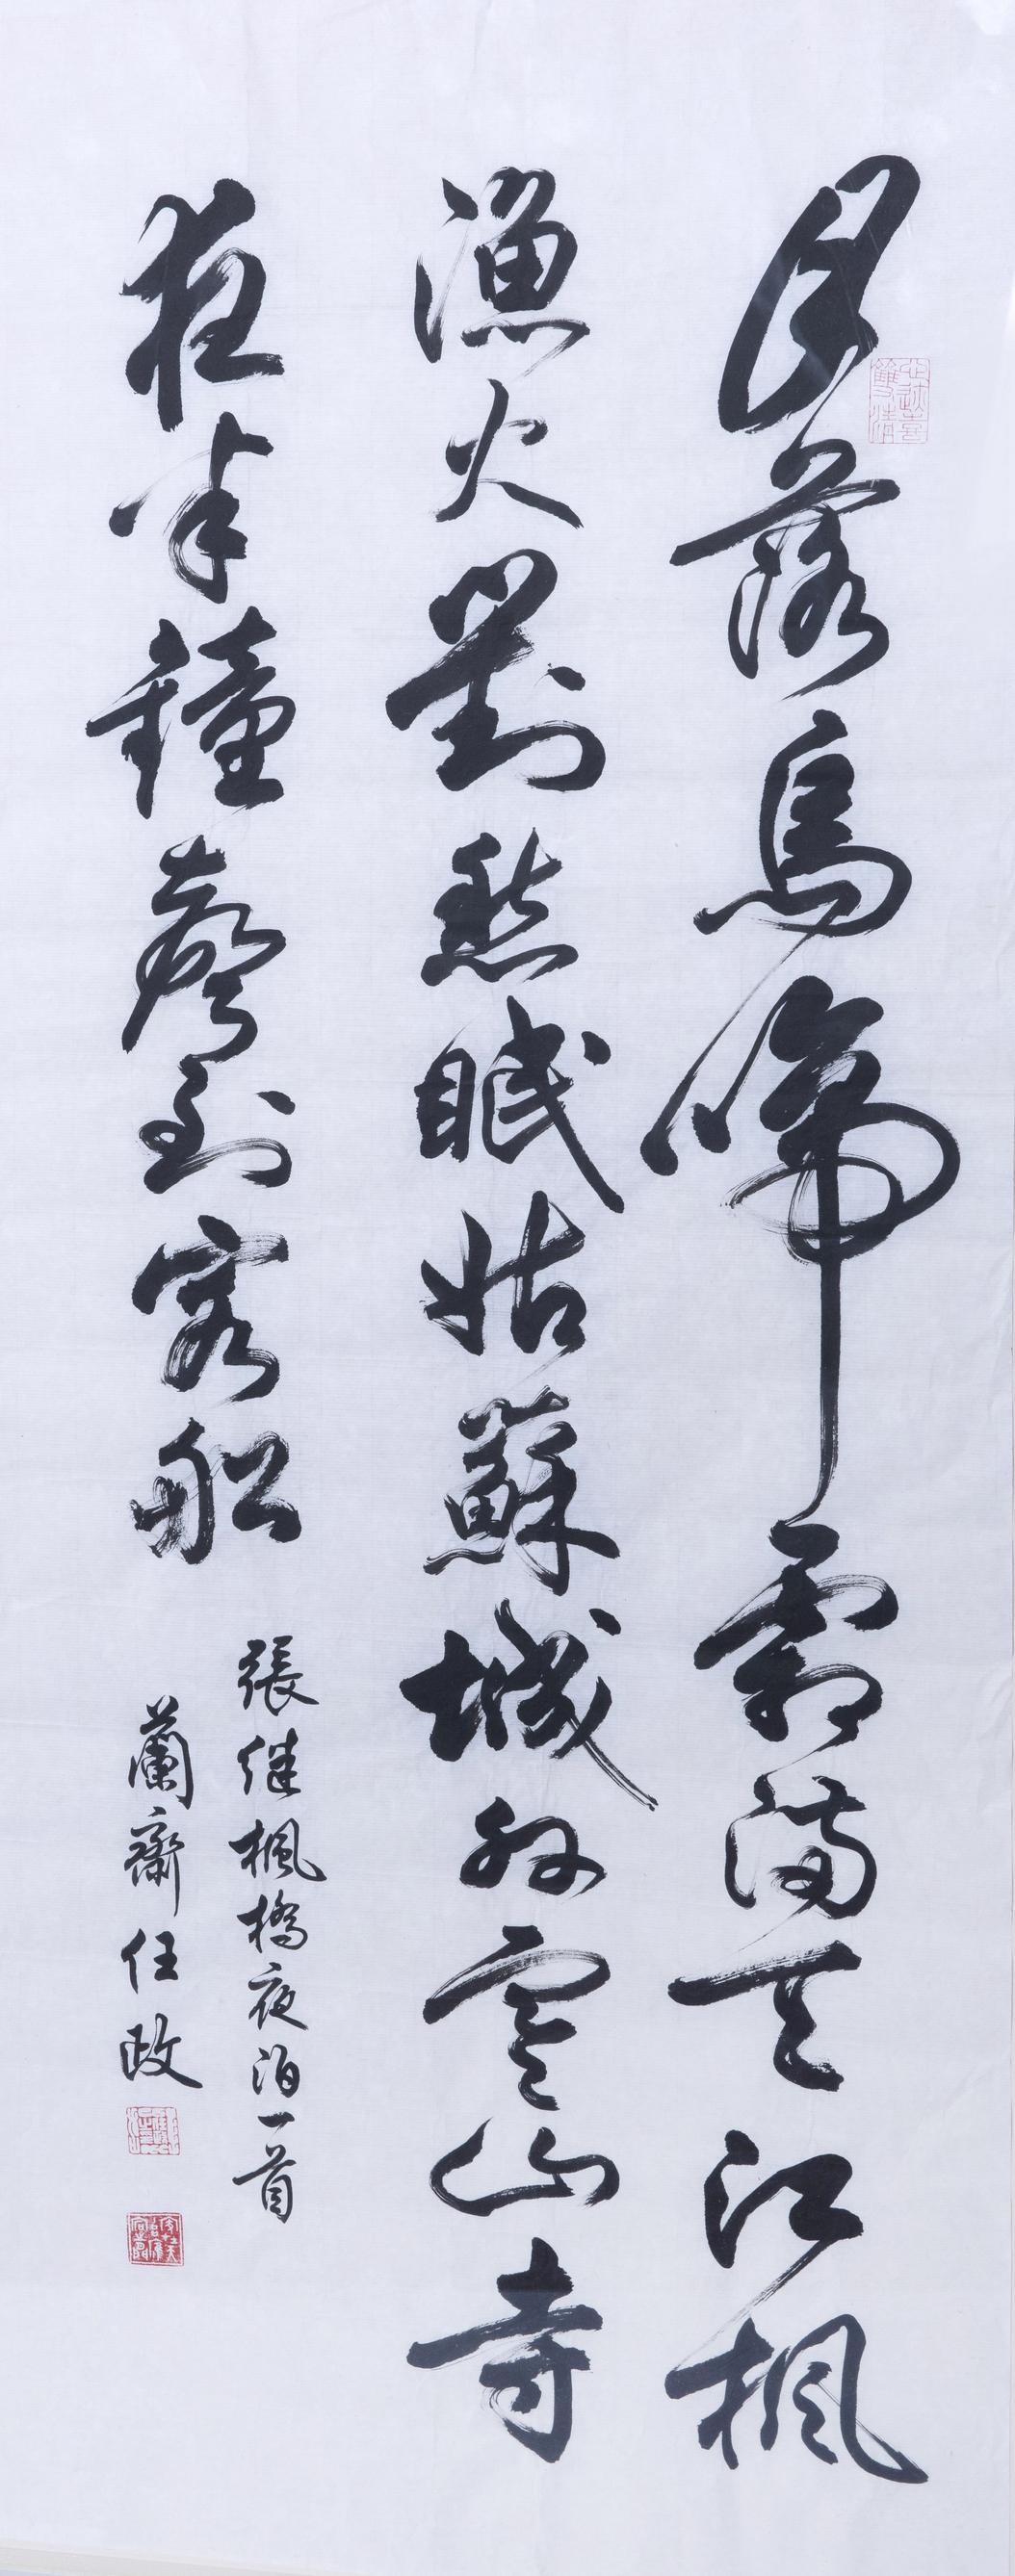 月落烏啼霜滿天江楓
漁火對愁眠姑蘇城外寒山寺
夜半鐘聲到客船
張继楓橋夜泊一首
蘭齋任政